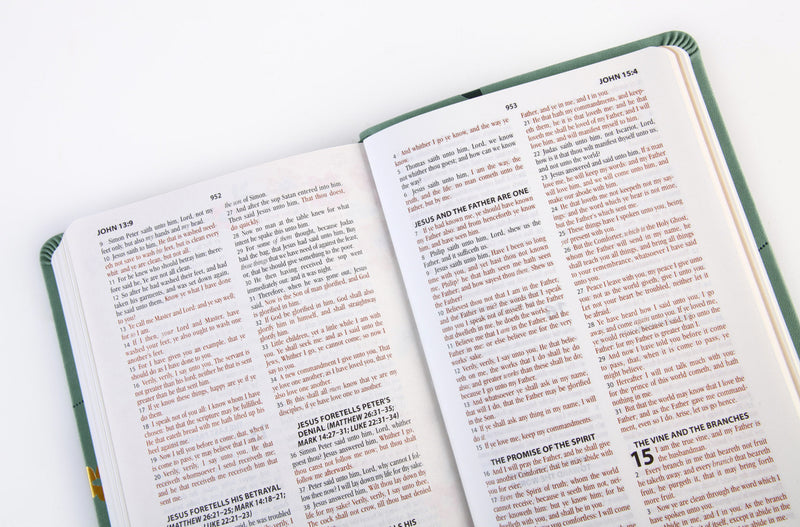 JOHN 13:9
952
9 Simon Peter saith unto him, Lord, not my
feet only, but also my hands and my head.
10 Jesus saith to him, He that is washed need-
eth not save to wash his feet, but is clean every
whit: and ye are clean, but not all.
11 For he knew who should betray him; there-
fore said he, Ye are not all clean.
12 So after he had washed their feet, and had
taken his garments, and was set down again,
he said unto them, Know ye what I have done
to you?
13 Ye call me Master and Lord: and ye say well;
for so I am.
14 If I then, your Lord and Master, have
washed your feet; ye also ought to wash one
another's feet.
15 For I have given you an example, that ye
should do as I have done to you.
16 Verily, verily, I say unto you, The servant is
not greater than his lord; neither he that is sent
greater than he that sent him.
17 If ye know these things, happy are ye if ye
do them.
18 I speak not of you all: I know whom I have
chosen: but that the scripture may be fulfilled,
He that eateth bread with me hath lifted up his
heel against me.
19 Now I tell you before it come, that, when it
is come to pass, ye may believe that I am he.
20 Verily, verily, I say unto you, He that
receiveth whomsoever I send receiveth me;
and he that receiveth me receiveth him that
sent me.
JESUS FORETELLS HIS BETRAYAL
(MATTHEW 26:21–25; MARK 14:18–21;
LUKE 22:21–23)
said, he was troubled
the son of Simon.
27 And after the sop Satan entered into him.
Then said Jesus unto him, That thou doest,
do quickly.
28 Now no man at the table knew for what
intent he spake this unto him.
29 For some of them thought, because Judas
had the bag, that Jesus had said unto him, Buy
those things that we have need of against the feast;
or, that he should give something to the poor.
30 He then having received the sop went
immediately out: and it was night.
31 Therefore, when he was gone out, Jesus
said, Now is the Son of man glorified, and God
is glorified in him.
32 If God be glorified in him, God shall also
glorify him in himself, and shall straightway
glorify him.
33 Little children, yet a little while I am with
you. Ye shall seek me: and as I said unto the
Jews, Whither I go, ye cannot come; so now I
say to you.
34 A new commandment I give unto you, That
ye love one another; as I have loved you, that ye
also love one another.
35 By this shall all men know that ye are my
disciples, if ye have love one to another.
JESUS FORETELLS PETER'S
DENIAL (MATTHEW 26:31–35;
MARK 14:27–31; LUKE 22:31–34)
36 Simon Peter said unto him, Lord, whither
goest thou? Jesus answered him, Whither I go,
thou canst not follow me now; but thou shalt
follow me afterwards.
37 Peter said unto him, Lord, why cannot I fol-
low thee now? I will lay down my life for thy sake.
38 Jesus answered him, Wilt thou lay down thy
life for my sake? Verily, verily, I say unto thee,
The cock shall not crow, till thou hast denied
953
JOHN 15:4
4 And whither I go ye know, and the way ye
know.
5 Thomas saith unto him, Lord, we know
not whither thou goest; and how can we know
the way?
6 Jesus saith unto him, I am the way, the
truth, and the life: no man cometh unto the
Father, but by me.
JESUS AND THE FATHER ARE ONE
7 If ye had known me, ye should have known
my Father also: and from henceforth ye know
him, and have seen him.
8 Philip saith unto him, Lord, shew us the
Father, and it sufficeth us.
9 Jesus saith unto him, Have I been so long
time with you, and yet hast thou not known
me, Philip? he that hath seen me hath seen
the Father; and how sayest thou then, Shew us
the Father?
10 Believest thou not that I am in the Father,
and the Father in me? the words that I speak
unto you I speak not of myself: but the Father
that dwelleth in me, he doeth the works.
11 Believe me that I am in the Father, and the
Father in me: or else believe me for the very
works' sake.
12 Verily, verily, I say unto you, He that believ-
eth on me, the works that I do shall he do
also; and greater works than these shall he do;
because I go unto my Father.
13 And whatsoever ye shall ask in my name,
that will I do, that the Father may be glorified
in the Son.
14 If ye shall ask any thing in my name, I will
do it.
15 If ye love me, keep my commandments.
THE PROMISE OF THE SPIRIT
16 And I will pray the Father, and he shall give
you another Comforter, that he may abide with
you for ever;
17 Even the Spirit of truth; whom the world
cannot receive, because it seeth him not, nei-
ther knoweth him: but ye know him; for he
Father, and ye in me, and I in you.
21 He that hath my commandments, and keep-
eth them, he it is that loveth me: and he that
loveth me shall be loved of my Father, and I will
love him, and will manifest myself to him.
22 Judas saith unto him, not Iscariot, Lord,
how is it that thou wilt manifest thyself unto us,
and not unto the world?
23 Jesus answered and said unto him, If a man
love me, he will keep my words: and my Father
will love him, and we will come unto him, and
make our abode with him.
24 He that loveth me not keepeth not my say-
ings: and the word which ye hear is not mine,
but the Father's which sent me.
25 These things have I spoken unto you, being
yet present with you.
26 But the Comforter, which is the Holy Ghost,
whom the Father will send in my name, he
shall teach you all things, and bring all things
to your remembrance, whatsoever I have said
unto you.
27 Peace I leave with you, my peace I give unto
you: not as the world giveth, give I unto you.
Let not your heart be troubled, neither let it
be afraid.
28 Ye have heard how I said unto you, I go
away, and come again unto you. If ye loved me, ye
would rejoice, because I said, I go unto the
Father: for my Father is greater than I.
29 And now I have told you before it come
to pass, that, when it is come to pass, ye
might believe.
30 Hereafter I will not talk much with you:
for the prince of this world cometh, and hath
nothing in me.
31 But that the world may know that I love the
Father; and as the Father gave me command-
ment, even so I do. Arise, let us go hence.
THE VINE AND THE BRANCHES
15 I am the true vine, and my Father is
the husbandman.
2 Every branch in me that beareth not fruit
he taketh away: and every branch that beareth
fruit, he purgeth it, that it may bring forth
more fruit.
3 Now ye are clean through the word which I